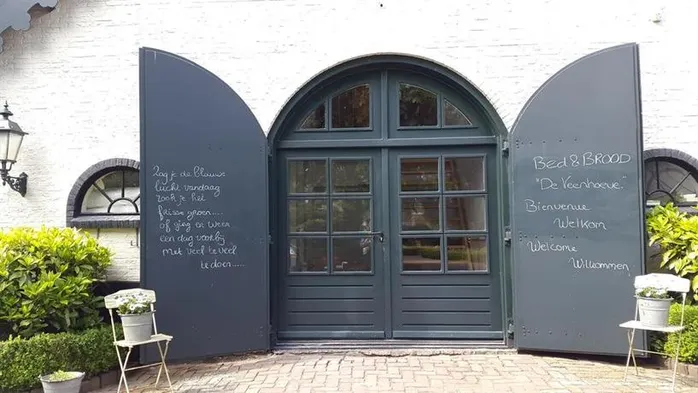 Zag je de blauwe
lucht vandaag
rook je het
frisse groen....
of ging er weer
een dag voorbij
met veel te veel
te doen.....
Bed & BROOD
"De Veenhoeve"
Bienvenue
Welkom
Welcome
Willkommen